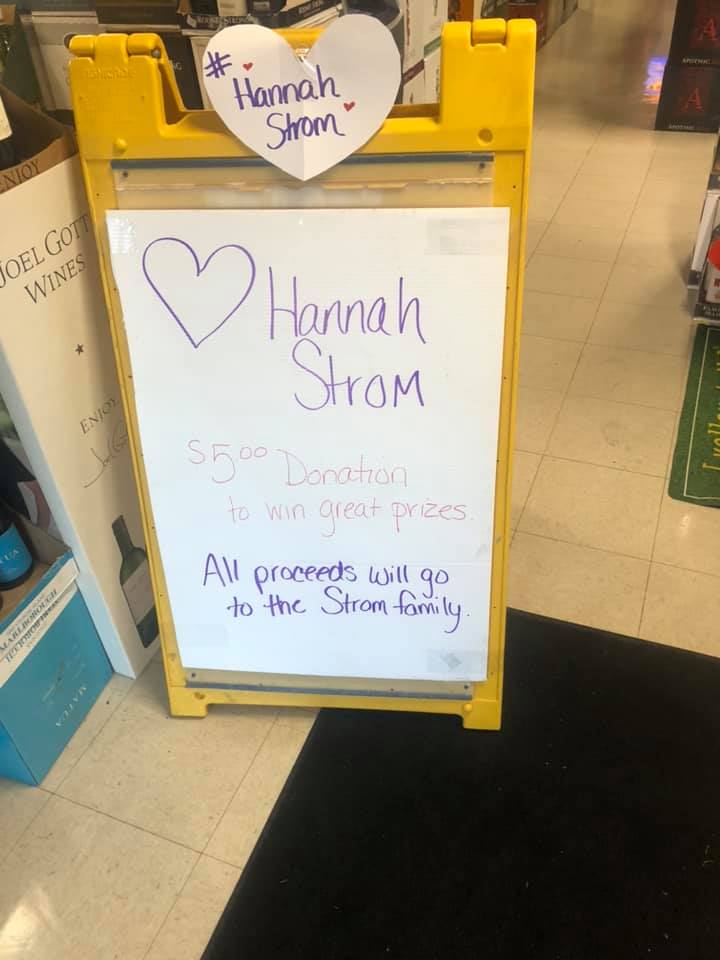 # Hannah
Strom
Hannah
Strom
$5.00 Donation
to win great prizes.
All proceeds will go
to the Strom family.
ENJOY
JOEL GOTT
WINES
ENJOY
MARLBOROUGH
MATUA
APOTHIC
A
A
APOTHIC